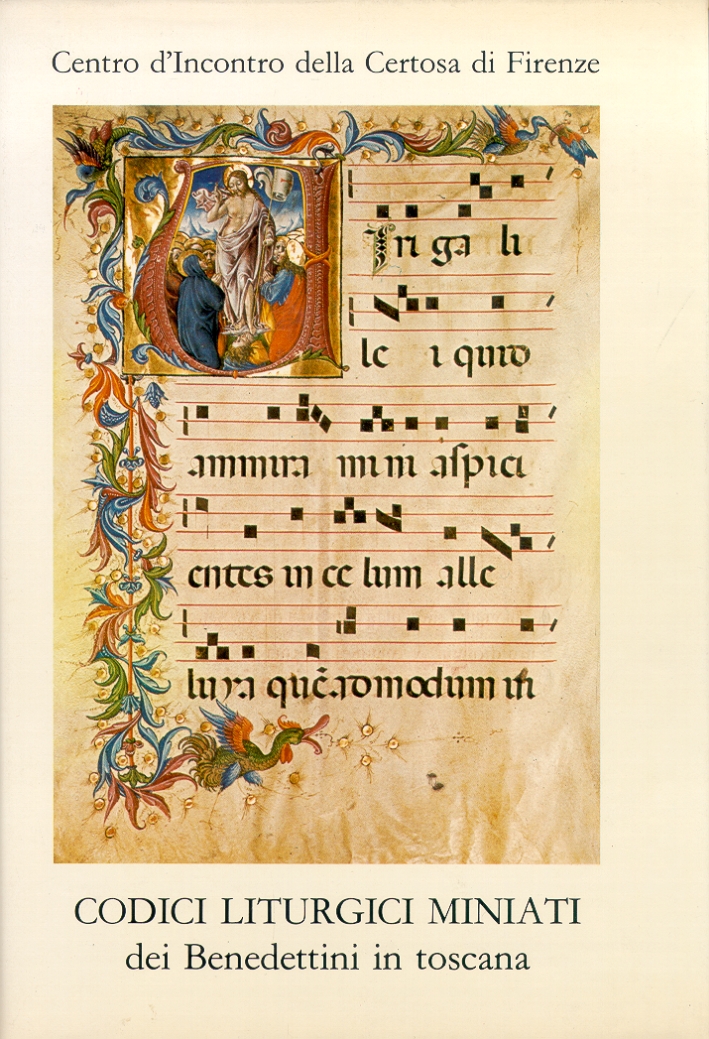 Centro d'Incontro della Certosa di Firenze
Viri ga li
le i quid
ammira mi ni aſpici
entes in ce lum alle
luya quēadmodum ui
CODICI LITURGICI MINIATI
dei Benedettini in toscana